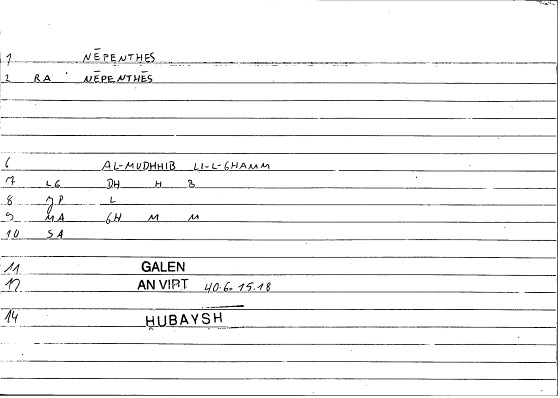 1 NĒPENTHES
2 RA NĒPENTHĒS
6 AL-MUDHHIB LI-L-GHAMM
7 LG DH H B
8 JP L
9 MA GH M M
10 SA
11 GALEN
12 AN VIRT 40.6.15.18
14 HUBAYSH